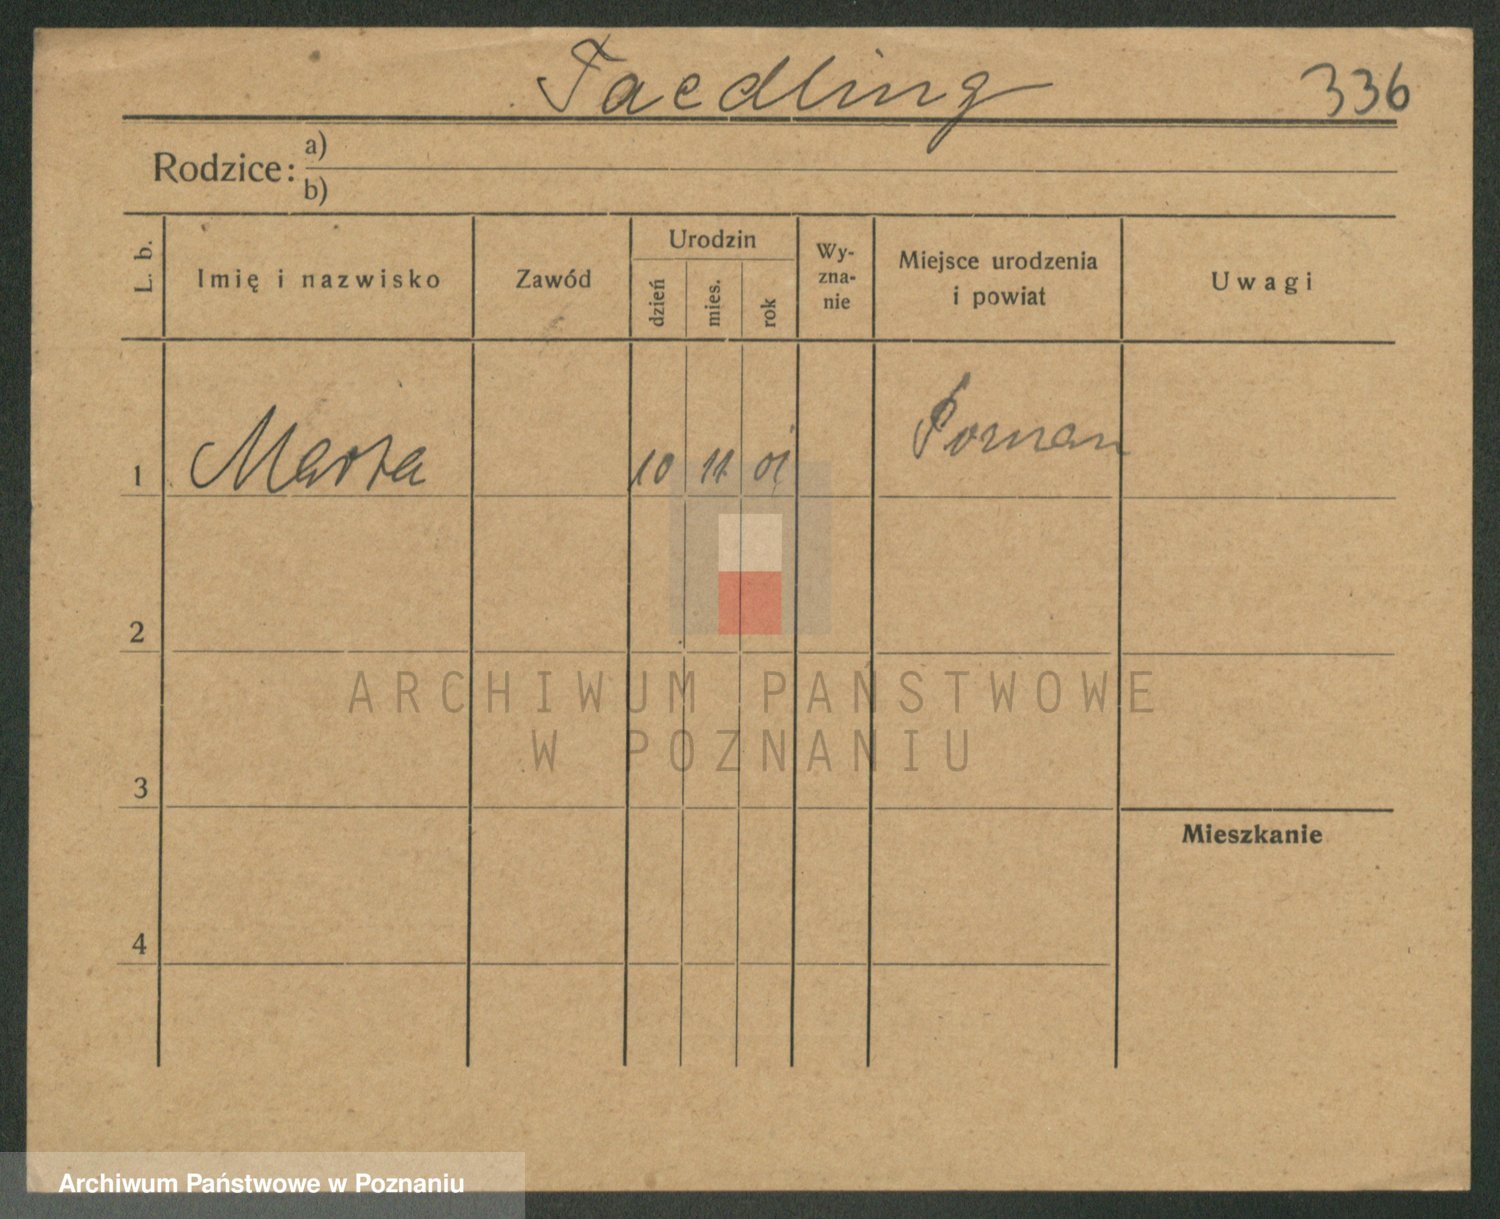 Taedling 336
Rodzice: a)
b)
L. b.
Imię i nazwisko
Zawód
Urodzin
dzień
mies.
rok
Wy-
zna-
nie
Miejsce urodzenia
i powiat
Uwagi
1 Marta 10 11. 01 Poznań
2
3
4
Mieszkanie
ARCHIWUM PAŃSTWOWE
W POZNANIU
Archiwum Państwowe w Poznaniu